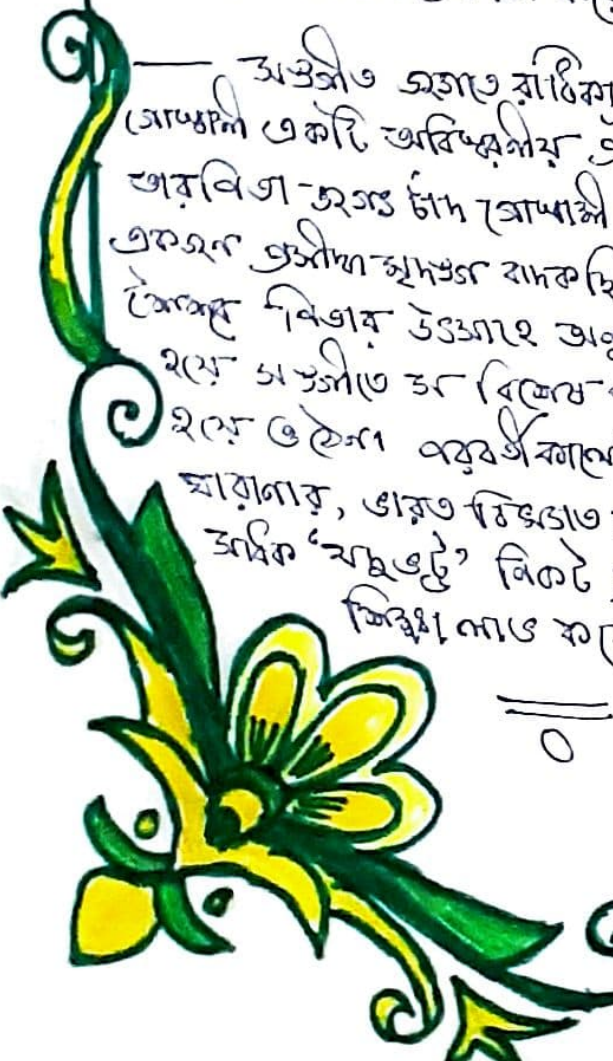 সঙ্গীত জগতে রাধিকা
গোস্বামী একটি অবিস্মরণীয়
তার পিতা - জগৎ চাঁদ গোস্বামী
একজন প্রসিদ্ধ মৃদঙ্গ বাদক ছি
শৈশবে পিতার উৎসাহে অনু
হয়ে সঙ্গীতে বিশেষ
হয়ে ওঠেন। পরবর্তী কালে
ঘারানার, ভারত বিখ্যাত
সাধক 'যদুভট্ট' নিকট
শিক্ষা লাভ করে